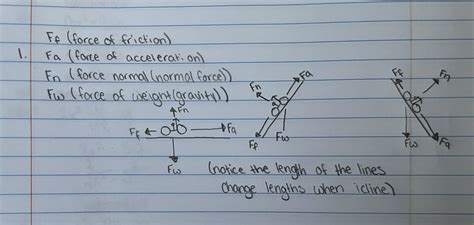 Ff (force of friction)
1. Fa (force of acceleration)
Fn (force normal (normal force))
Fw (force of weight (gravity))
Fn
Ff Fa
Fw
Fn Fa
Ff Fw
Ff Fn
Fw Fa
(notice the length of the lines
change lengths when icline)